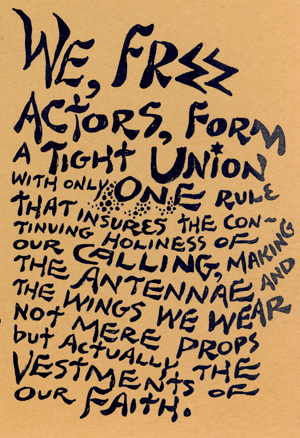 WE, FREE
ACTORS, FORM
A TIGHT UNION*
WITH ONLY ONE RULE
THAT INSURES THE CON-
TINUING HOLINESS OF
OUR CALLING, MAKING
THE ANTENNAE AND
THE WINGS WE WEAR
NOT MERE PROPS
but ACTUALLY THE
VESTMENTS OF
OUR FAITH.